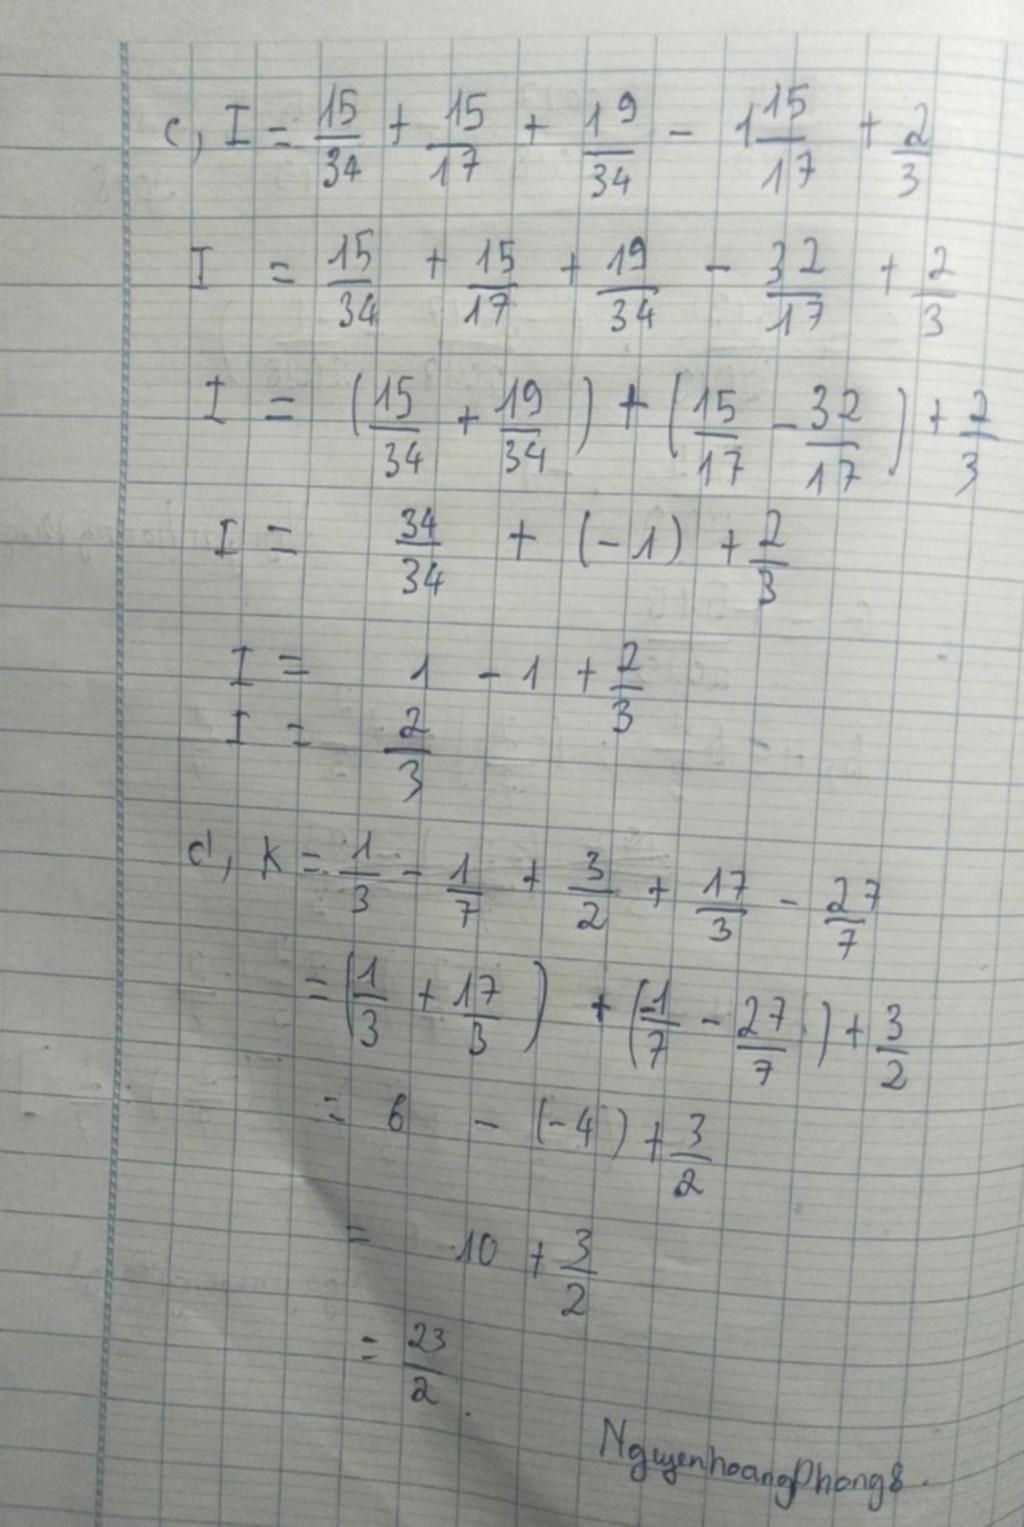 c, I = 15/34 + 15/17 + 19/34 - 1 15/17 + 2/3
I = 15/34 + 15/17 + 19/34 - 32/17 + 2/3
I = (15/34 + 19/34) + (15/17 - 32/17) + 2/3
I = 34/34 + (-1) + 2/3
I = 1 - 1 + 2/3
I = 2/3
d, K = 1/3 - 1/7 + 3/2 + 17/3 - 27/7
= (1/3 + 17/3) + (-1/7 - 27/7) + 3/2
= 6 - (-4) + 3/2
= 10 + 3/2
= 23/2.
NguyenhoangPhong8.